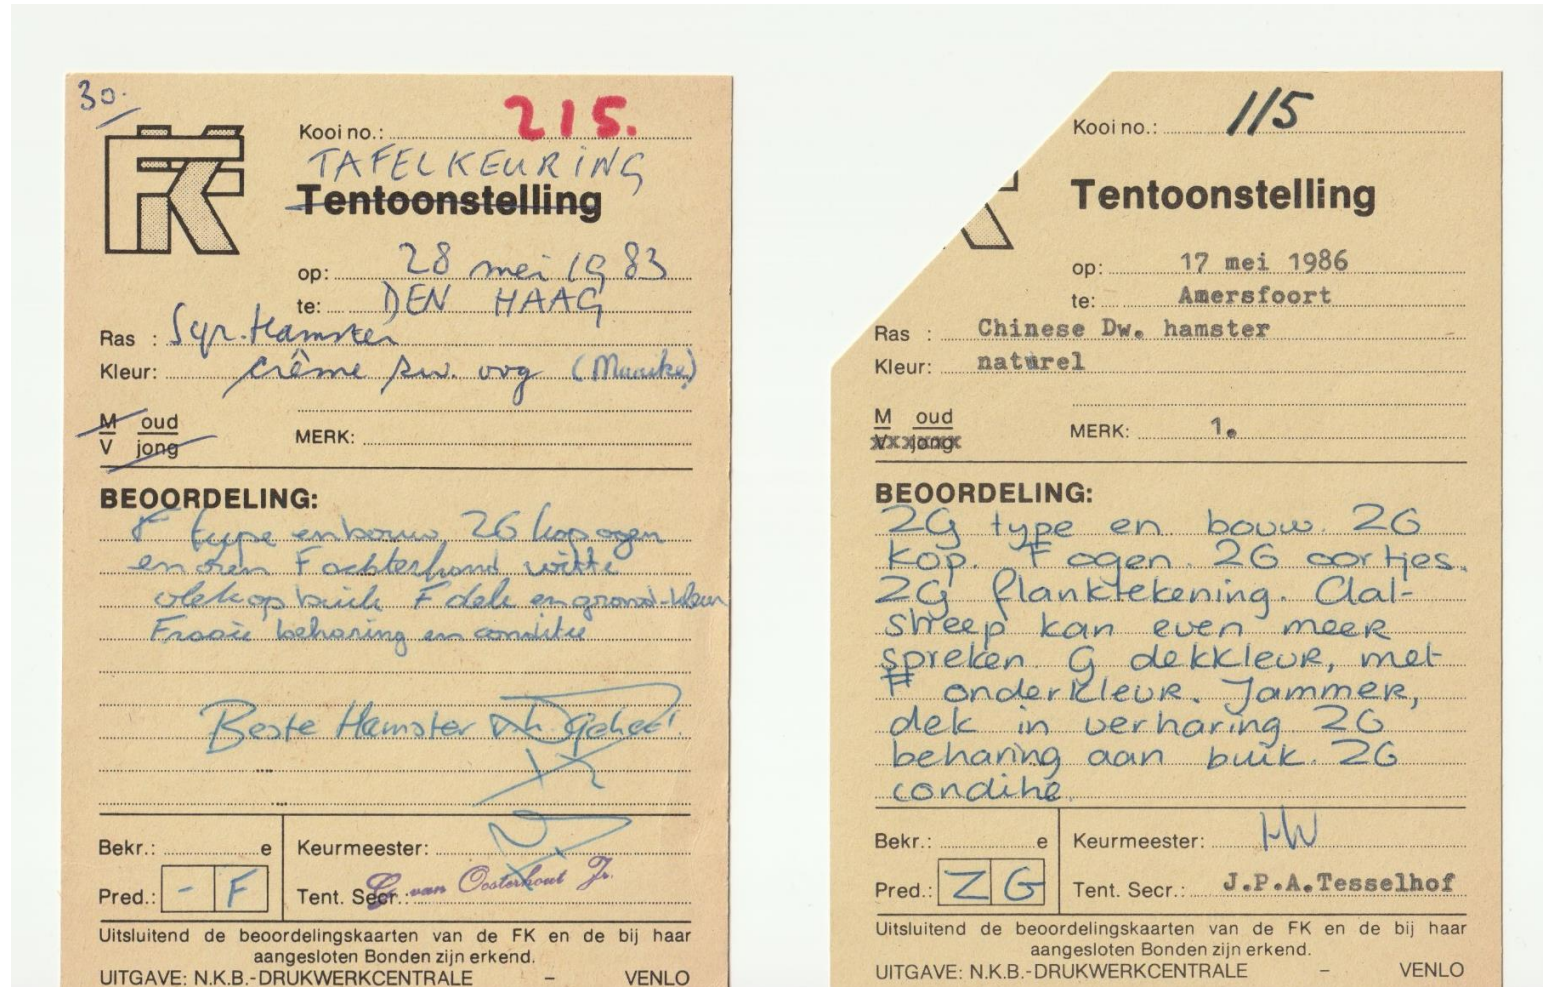 30.
FK
Kooi no.: 215.
TAFELKEURING
Tentoonstelling
op: 28 mei 1983
te: DEN HAAG
Ras : Syr. Hamster
Kleur: crême zw. oog (Maaike)
M oud
V jong
MERK:
BEOORDELING:
F type en bouw, ZG kop ogen
en oren F achterhand witte
vlek op buik F dek en grond-kleur
Fraaie beharing en conditie
Beste Hamster
Bekr.: e
Keurmeester:
Pred.: - F
Tent. Secr.: G. van Oosterhout Jr.
Uitsluitend de beoordelingskaarten van de FK en de bij haar
aangesloten Bonden zijn erkend.
UITGAVE: N.K.B.-DRUKWERKCENTRALE – VENLO
Kooi no.: 115
Tentoonstelling
op: 17 mei 1986
te: Amersfoort
Ras : Chinese Dw. hamster
Kleur: naturel
M oud
V jong
MERK: 1.
BEOORDELING:
ZG type en bouw. ZG
kop. F ogen. ZG oortjes.
ZG flanktekening. Aal-
streep kan even meer
spreken. G dekkleur, met
F onderkleur. Jammer,
dek in verharing ZG
beharing aan buik. ZG
conditie.
Bekr.: e
Keurmeester: HW
Pred.: ZG
Tent. Secr.: J.P.A.Tesselhof
Uitsluitend de beoordelingskaarten van de FK en de bij haar
aangesloten Bonden zijn erkend.
UITGAVE: N.K.B.-DRUKWERKCENTRALE – VENLO